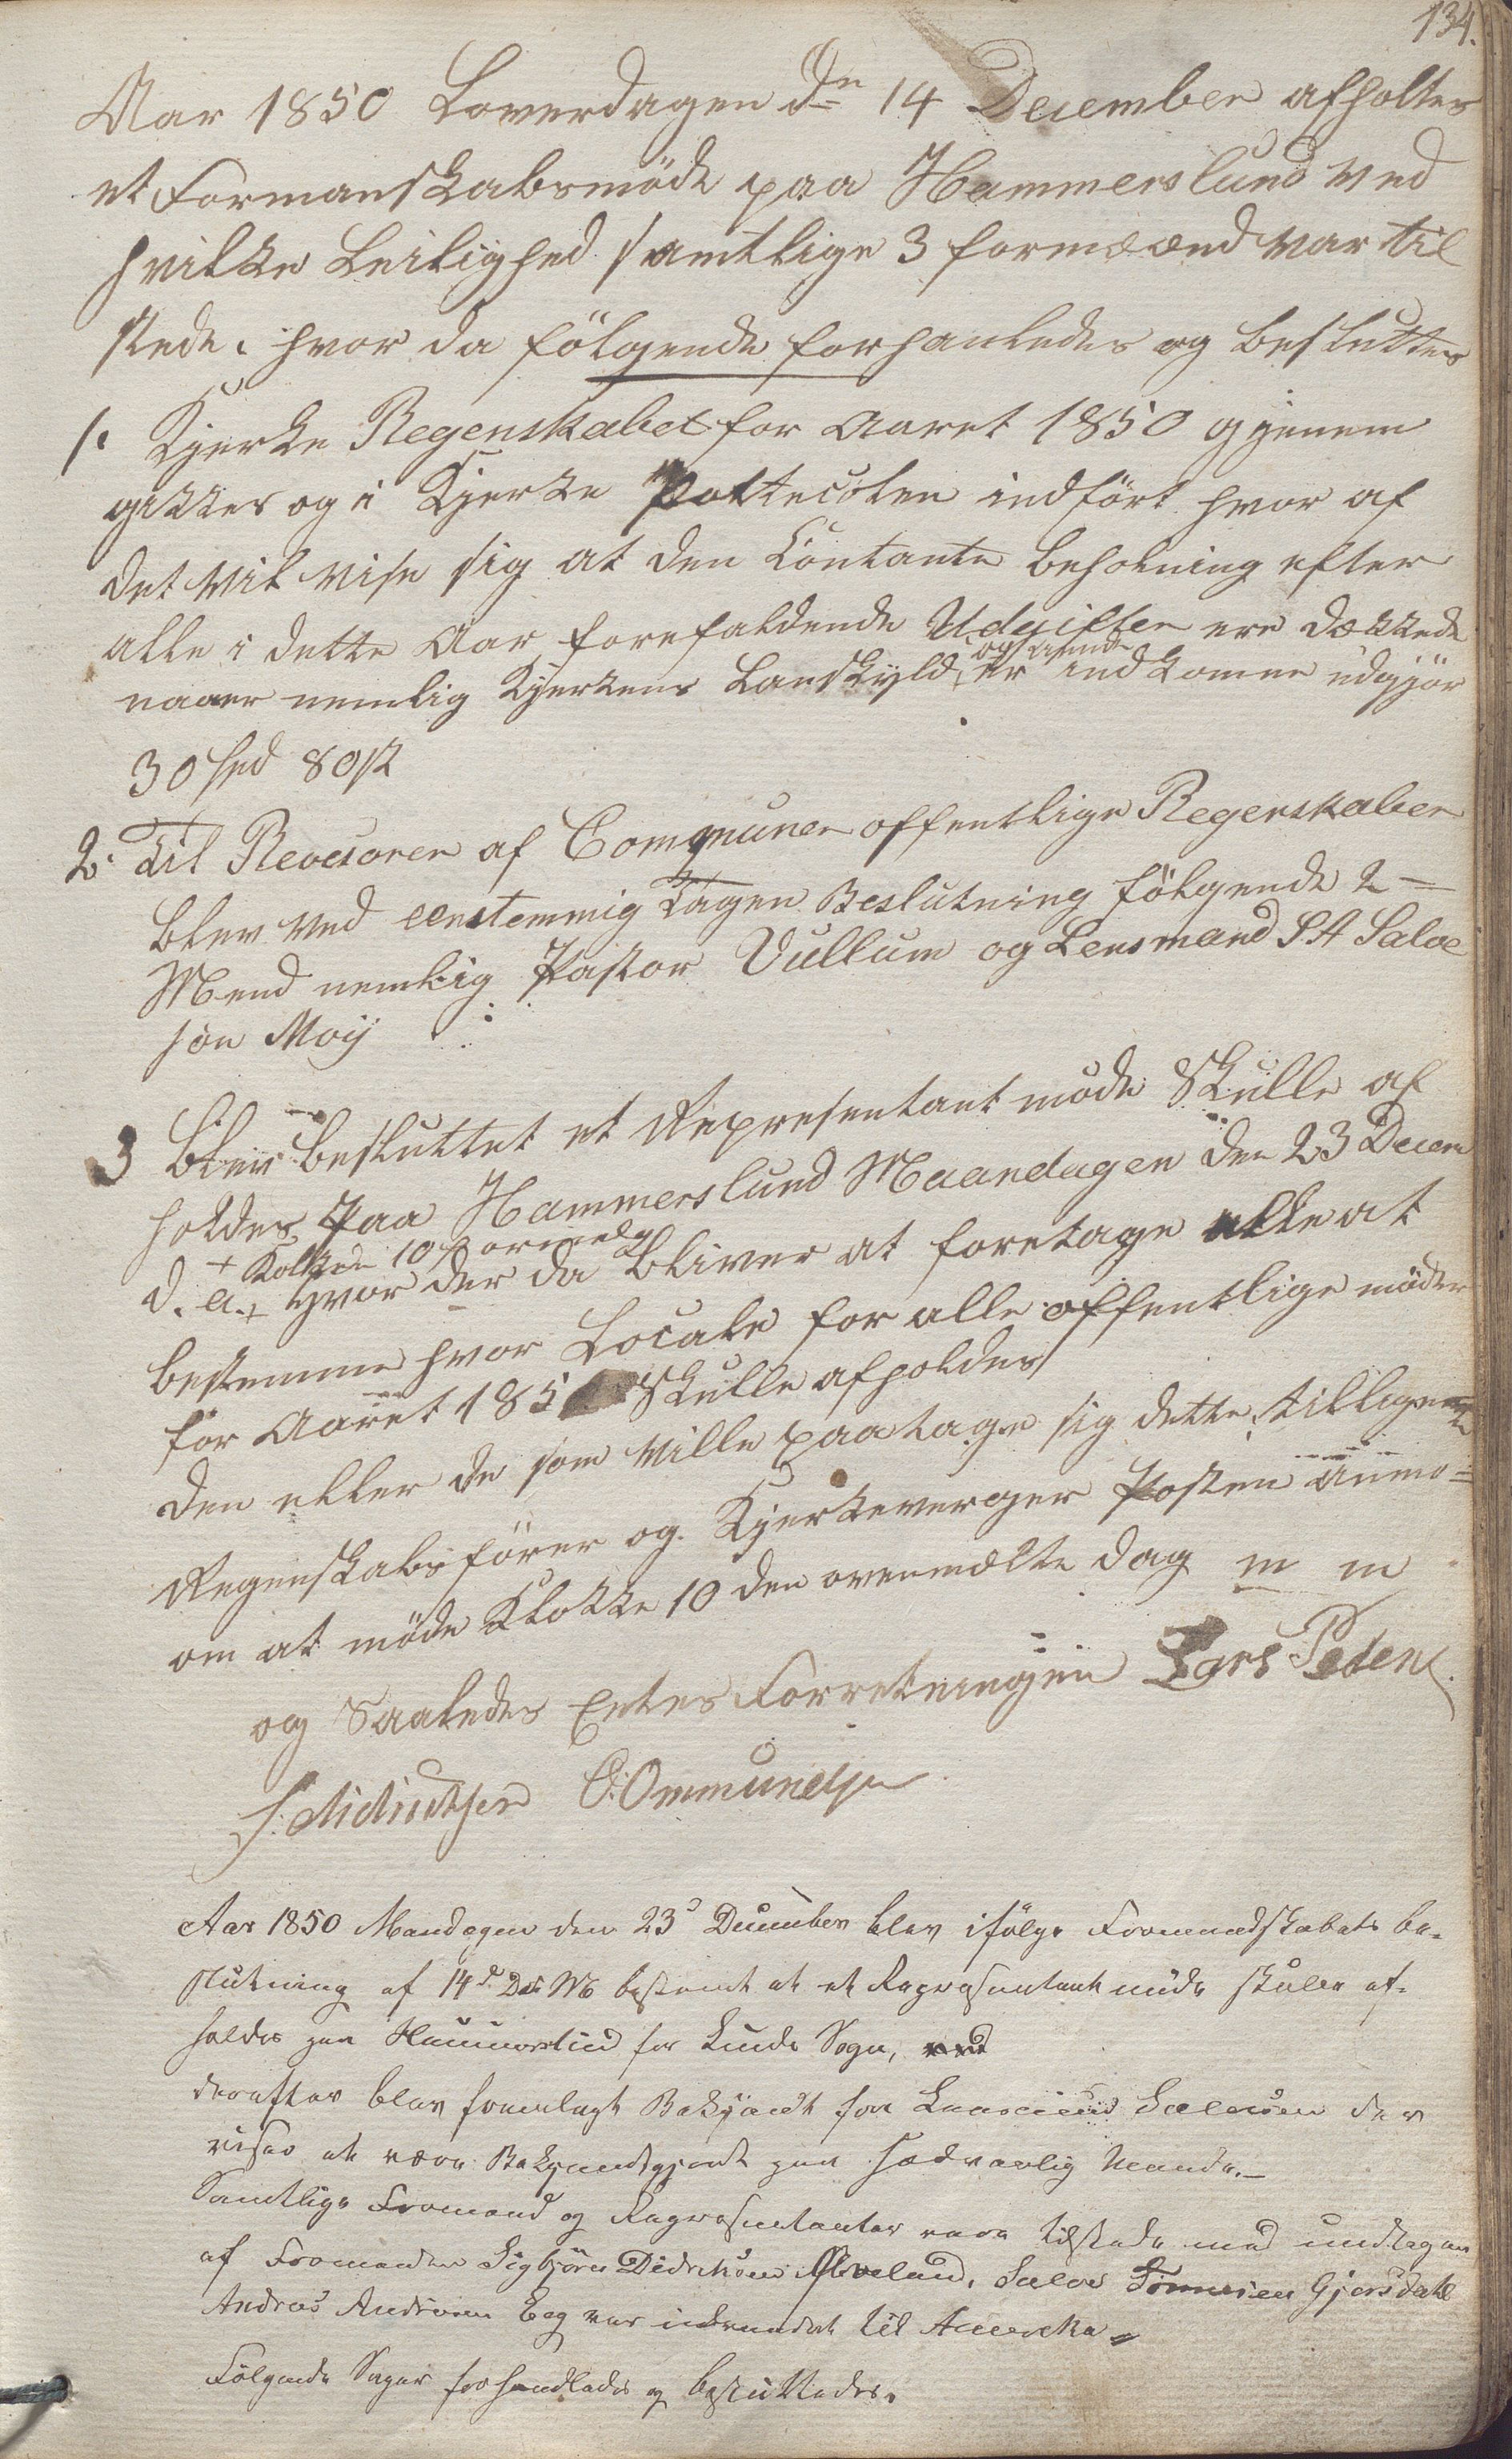 134.
Aar 1850 Loverdagen dn 14 December afholtes
et Formanskabsmöde paa Hammerslund ved
hvilke Leilighed samtlige 3 formænd var til
stede. hvor da fölgende forhanledes og besluttes
1. Kjerke Regenskabet for Aaret 1850 gjenem
gikkes og i Kjerke indfört hvor af
det vil vise sig at den Contante beholning efter
alle i dette Aar forefaldende Udgifter ere dækkede
naaer nemlig Kjerkens Lanskyld er indkomen udgjör
30 spd 80 sk
2. Til Revesorer af Communen offentlige Regenskaber
blev ved eenstemmig tagen Beslutning fölgende 2
Mend nemlig Pastor Vullum og Lensmand SA Salve
sön Moij
3 Blev besluttet et Representant möde Skulle af
holdes paa Hammerslund Maandagen den 23 Decem
+ Kolken 10 formidg
d. A.+ hvor der da bliver at foretage at
bestemme hvor Locale for alle offentlige möder
for Aaret 185 Skulle afholdes
den eller de som ville paatage sig dette, tilligemed
Regenskabsförer og Kjerkeverger Posten anmo=
om at möde Klokke 10 den ovenmelte dag m m
og Saaledes Entes Forretningen Lars Peders.
S. Didricksen O: Ommundsen
Aar 1850 Mandagen den 23d December blev ifölge Formandskabets be-
slutning af 14d Ds M bestemt at et Repræsentantmöde skulle af-
holdes paa Hammerslund for Lunde Sogn, ved
derefter blev fremlagt Bekjendt fra Lensmand Salvesen der
viser at være Bekjendtgjort paa sædvanlig Maade.-
Samtlige Formænd og Repræsentanter vare tilstede med undtagen
af Formanden Sigbjörn Didricksen Sleveland, Salve Tönnesen Gjersdahl
Andreas Andersen Eeg var udvandret til Amerika
Fölgende Sager forhandledes og besluttedes.